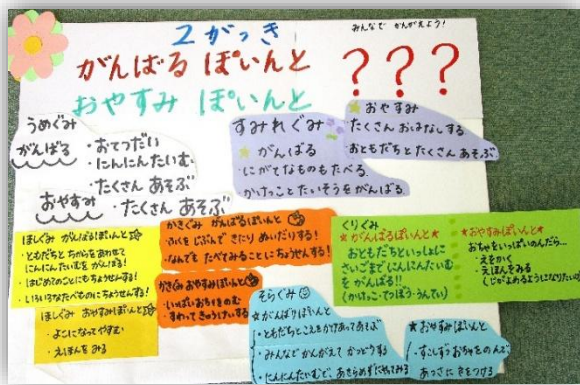 2がっき
みんなで かんがえよう!
がんばる ぽいんと
おやすみ ぽいんと
???
うめぐみ
がんばる
・おてつだい
・にんにんたいむ
・たくさん あそぶ
おやすみ
・たくさん あそぶ
すみれぐみ
★がんばる
にがてなものもたべる
かけっことたいそうをがんばる
★おやすみ
たくさん おはなしする
おともだちとたくさん あそぶ
ほしぐみ がんばるぽいんと☆
・ともだちと ちからをあわせて
にんにんたいむを がんばる!
・はじめてのことにもちょうせんする!
・いろいろなたべものにちょうせんする!
ほしぐみ おやすみぽいんと☆
・よこになってやすむ
・えほんを みる
かきぐみ がんばるぽいんと
・ふくを じぶんで きたり ぬいだりする!
・なんでも たべてみることに ちょうせんする!
かきぐみ おやすみぽいんと
・いっぱいおちゃをのむ
・すわって きゅうけいする
くりぐみ
★がんばるぽいんと★
おともだちといっしょに
さいごまで にんにんたいむ
を がんばる!!
(かけっこ・てつぼう・うんてい)
★おやすみぽいんと★
おちゃをいっぱいのんだら…
・えをかく
・えほんをみる
(じがよめるようになりたい
そらぐみ
★がんばりぽいんと
・ともだちとこえをかけあってあそぶ
・みんなで かんがえて かつどうする
・にんにんたいむで、あきらめずにやってみる
★おやすみぽいんと
・すこしずつ おちゃをのんで
あつさに きをつける